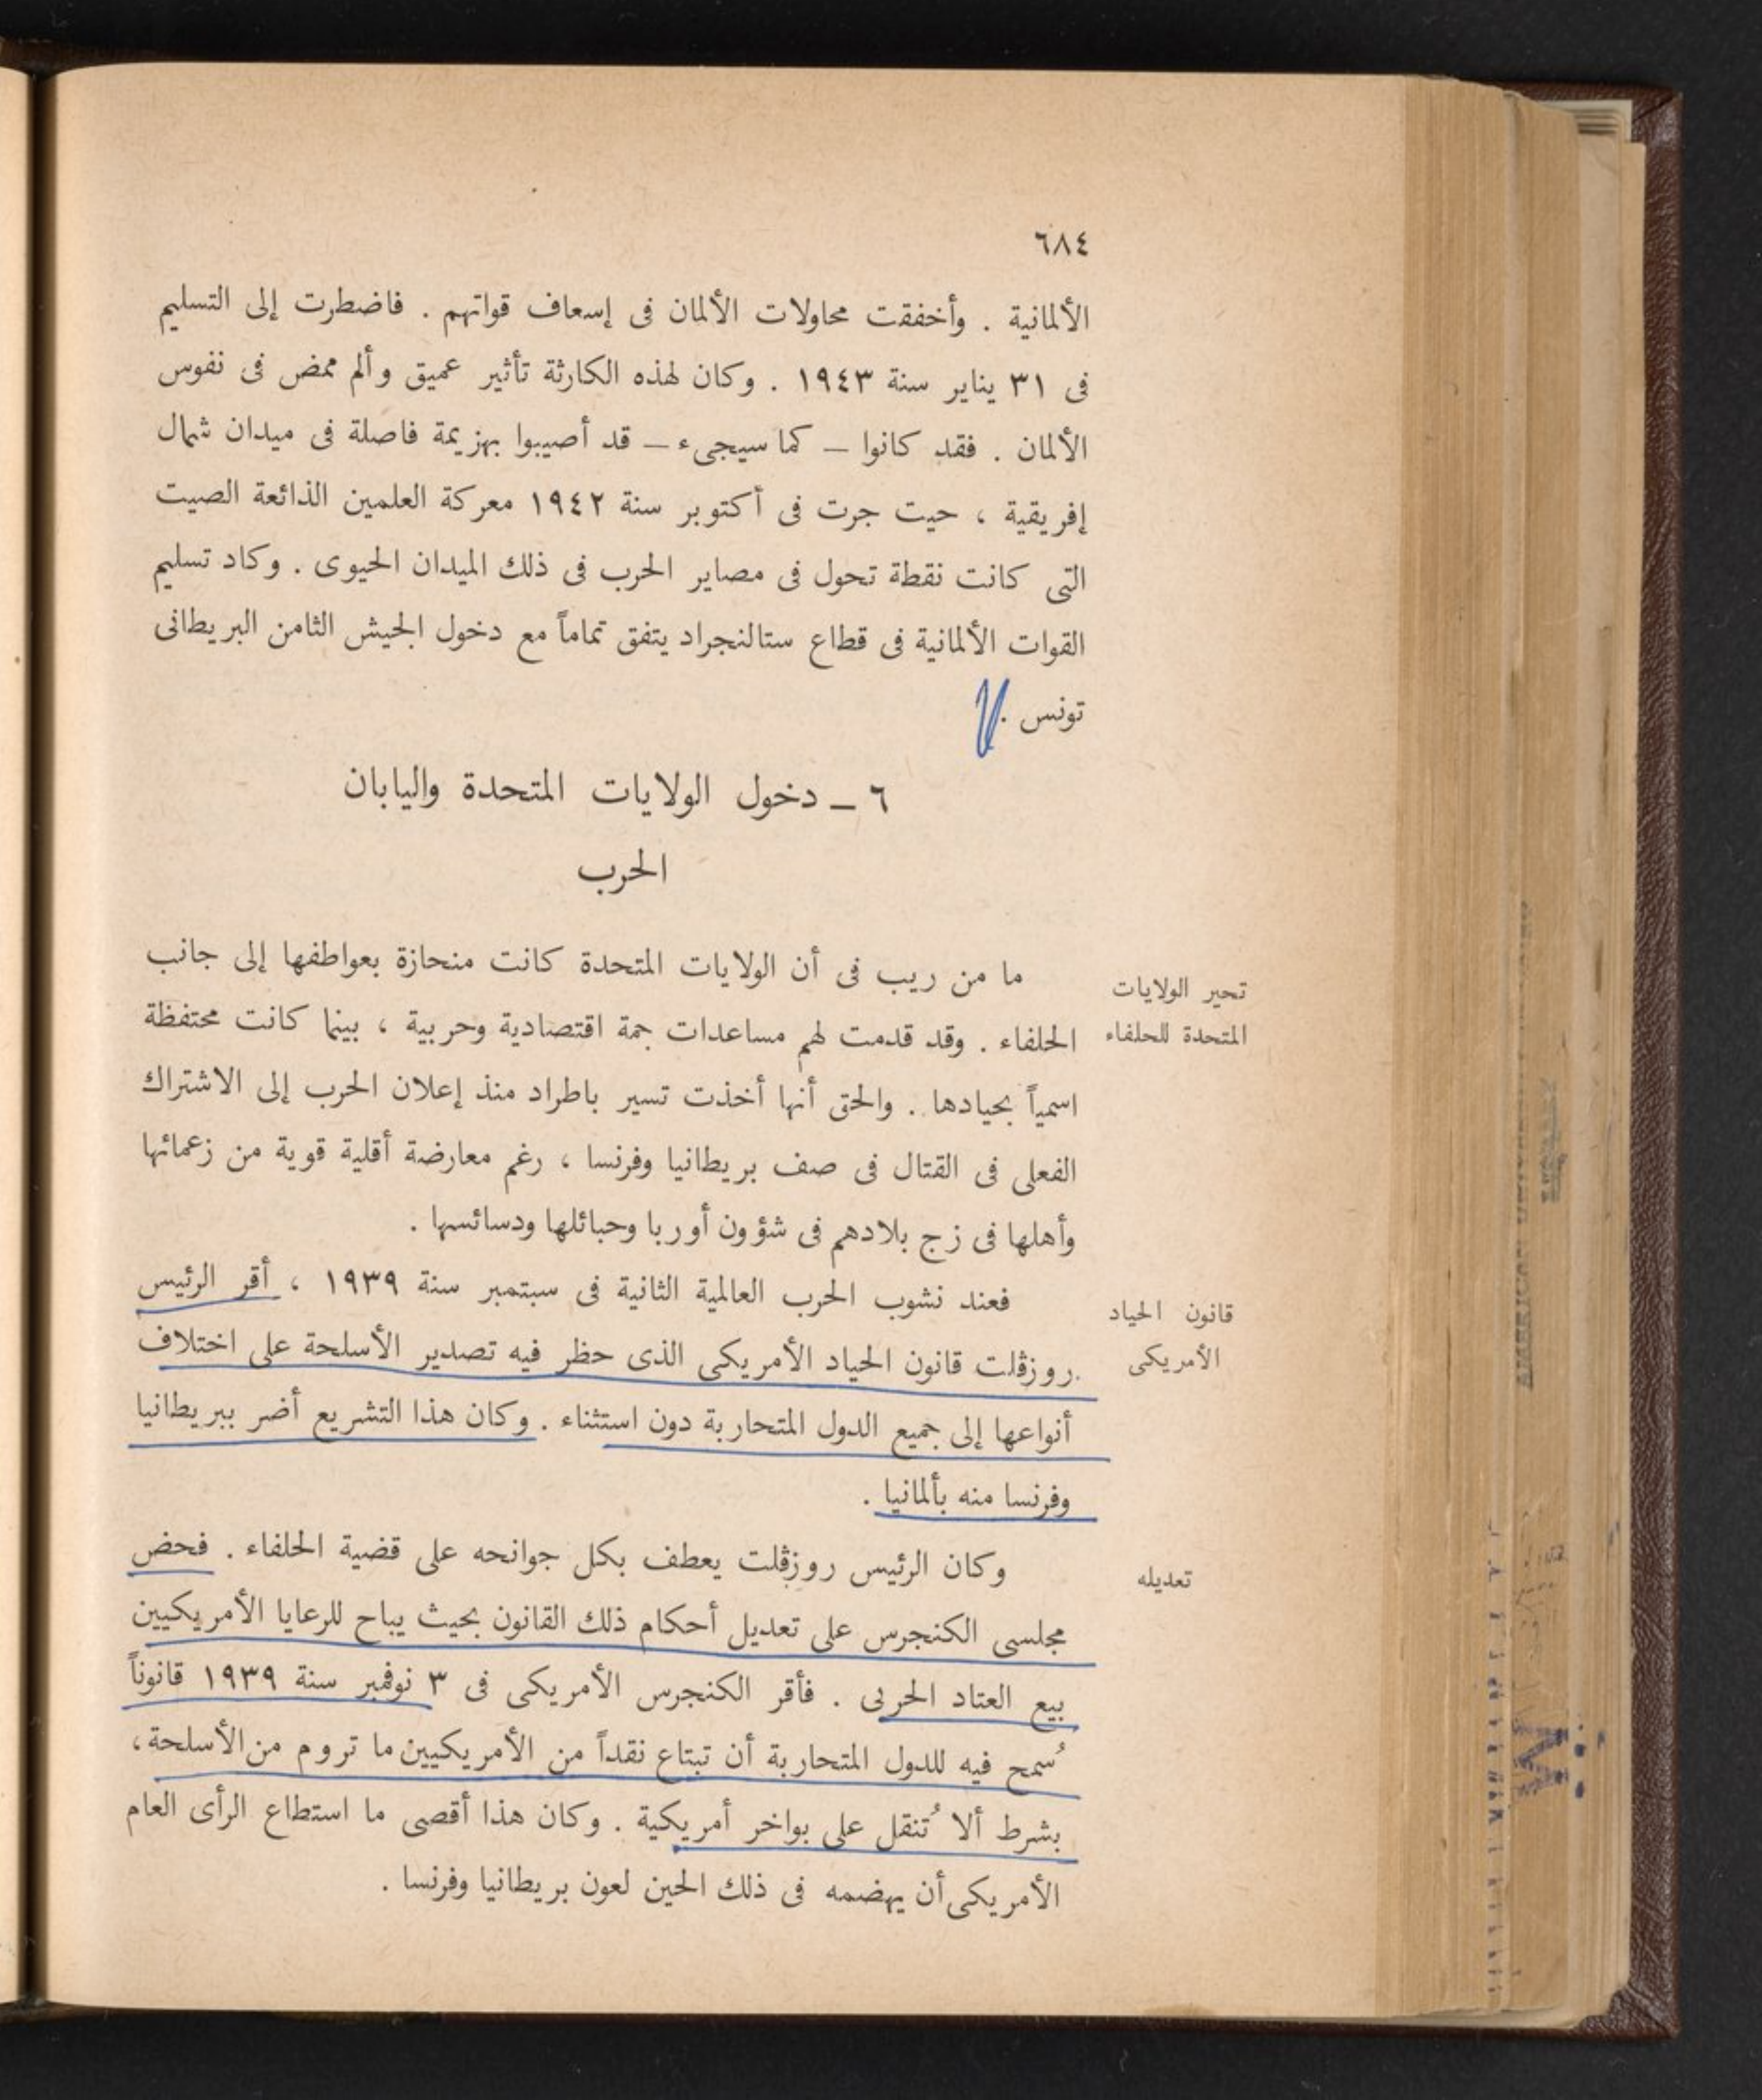 ٦٨٤
الألمانية . وأخفقت محاولات الألمان فى إسعاف قواتهم . فاضطرت إلى التسليم
فى ٣١ يناير سنة ١٩٤٣ . وكان لهذه الكارثة تأثير عميق وألم ممض فى نفوس
الألمان . فقد كانوا – كما سيجىء – قد أصيبوا بهزيمة فاصلة فى ميدان شمال
إفريقية ، حيت جرت فى أكتوبر سنة ١٩٤٢ معركة العلمين الذائعة الصيت
التى كانت نقطة تحول فى مصاير الحرب فى ذلك الميدان الحيوى . وكاد تسليم
القوات الألمانية فى قطاع ستالنجراد يتفق تماماً مع دخول الجيش الثامن البريطانى
تونس .
٦ – دخول الولايات المتحدة واليابان
الحرب
تحير الولايات
المتحدة للحلفاء
ما من ريب فى أن الولايات المتحدة كانت منحازة بعواطفها إلى جانب
الحلفاء . وقد قدمت لهم مساعدات جمة اقتصادية وحربية ، بينما كانت محتفظة
اسمياً بحيادها . والحق أنها أخذت تسير باطراد منذ إعلان الحرب إلى الاشتراك
الفعلى فى القتال فى صف بريطانيا وفرنسا ، رغم معارضة أقلية قوية من زعمائها
وأهلها فى زج بلادهم فى شؤون أوربا وحبائلها ودسائسها .
قانون الحياد
الأمريكى
فعند نشوب الحرب العالمية الثانية فى سبتمبر سنة ١٩٣٩ ، أقر الرئيس
روزڤلت قانون الحياد الأمريكى الذى حظر فيه تصدير الأسلحة على اختلاف
أنواعها إلى جميع الدول المتحاربة دون استثناء . وكان هذا التشريع أضر ببريطانيا
وفرنسا منه بألمانيا .
تعديله
وكان الرئيس روزڤلت يعطف بكل جوانحه على قضية الحلفاء . فحض
مجلسى الكنجرس على تعديل أحكام ذلك القانون بحيث يباح للرعايا الأمريكيين
بيع العتاد الحربى . فأقر الكنجرس الأمريكى فى ٣ نوڤمبر سنة ١٩٣٩ قانوناً
سُمح فيه للدول المتحاربة أن تبتاع نقداً من الأمريكيين ما تروم من الأسلحة ،
بشرط ألا تُنقل على بواخر أمريكية . وكان هذا أقصى ما استطاع الرأى العام
الأمريكى أن يهضمه فى ذلك الحين لعون بريطانيا وفرنسا .